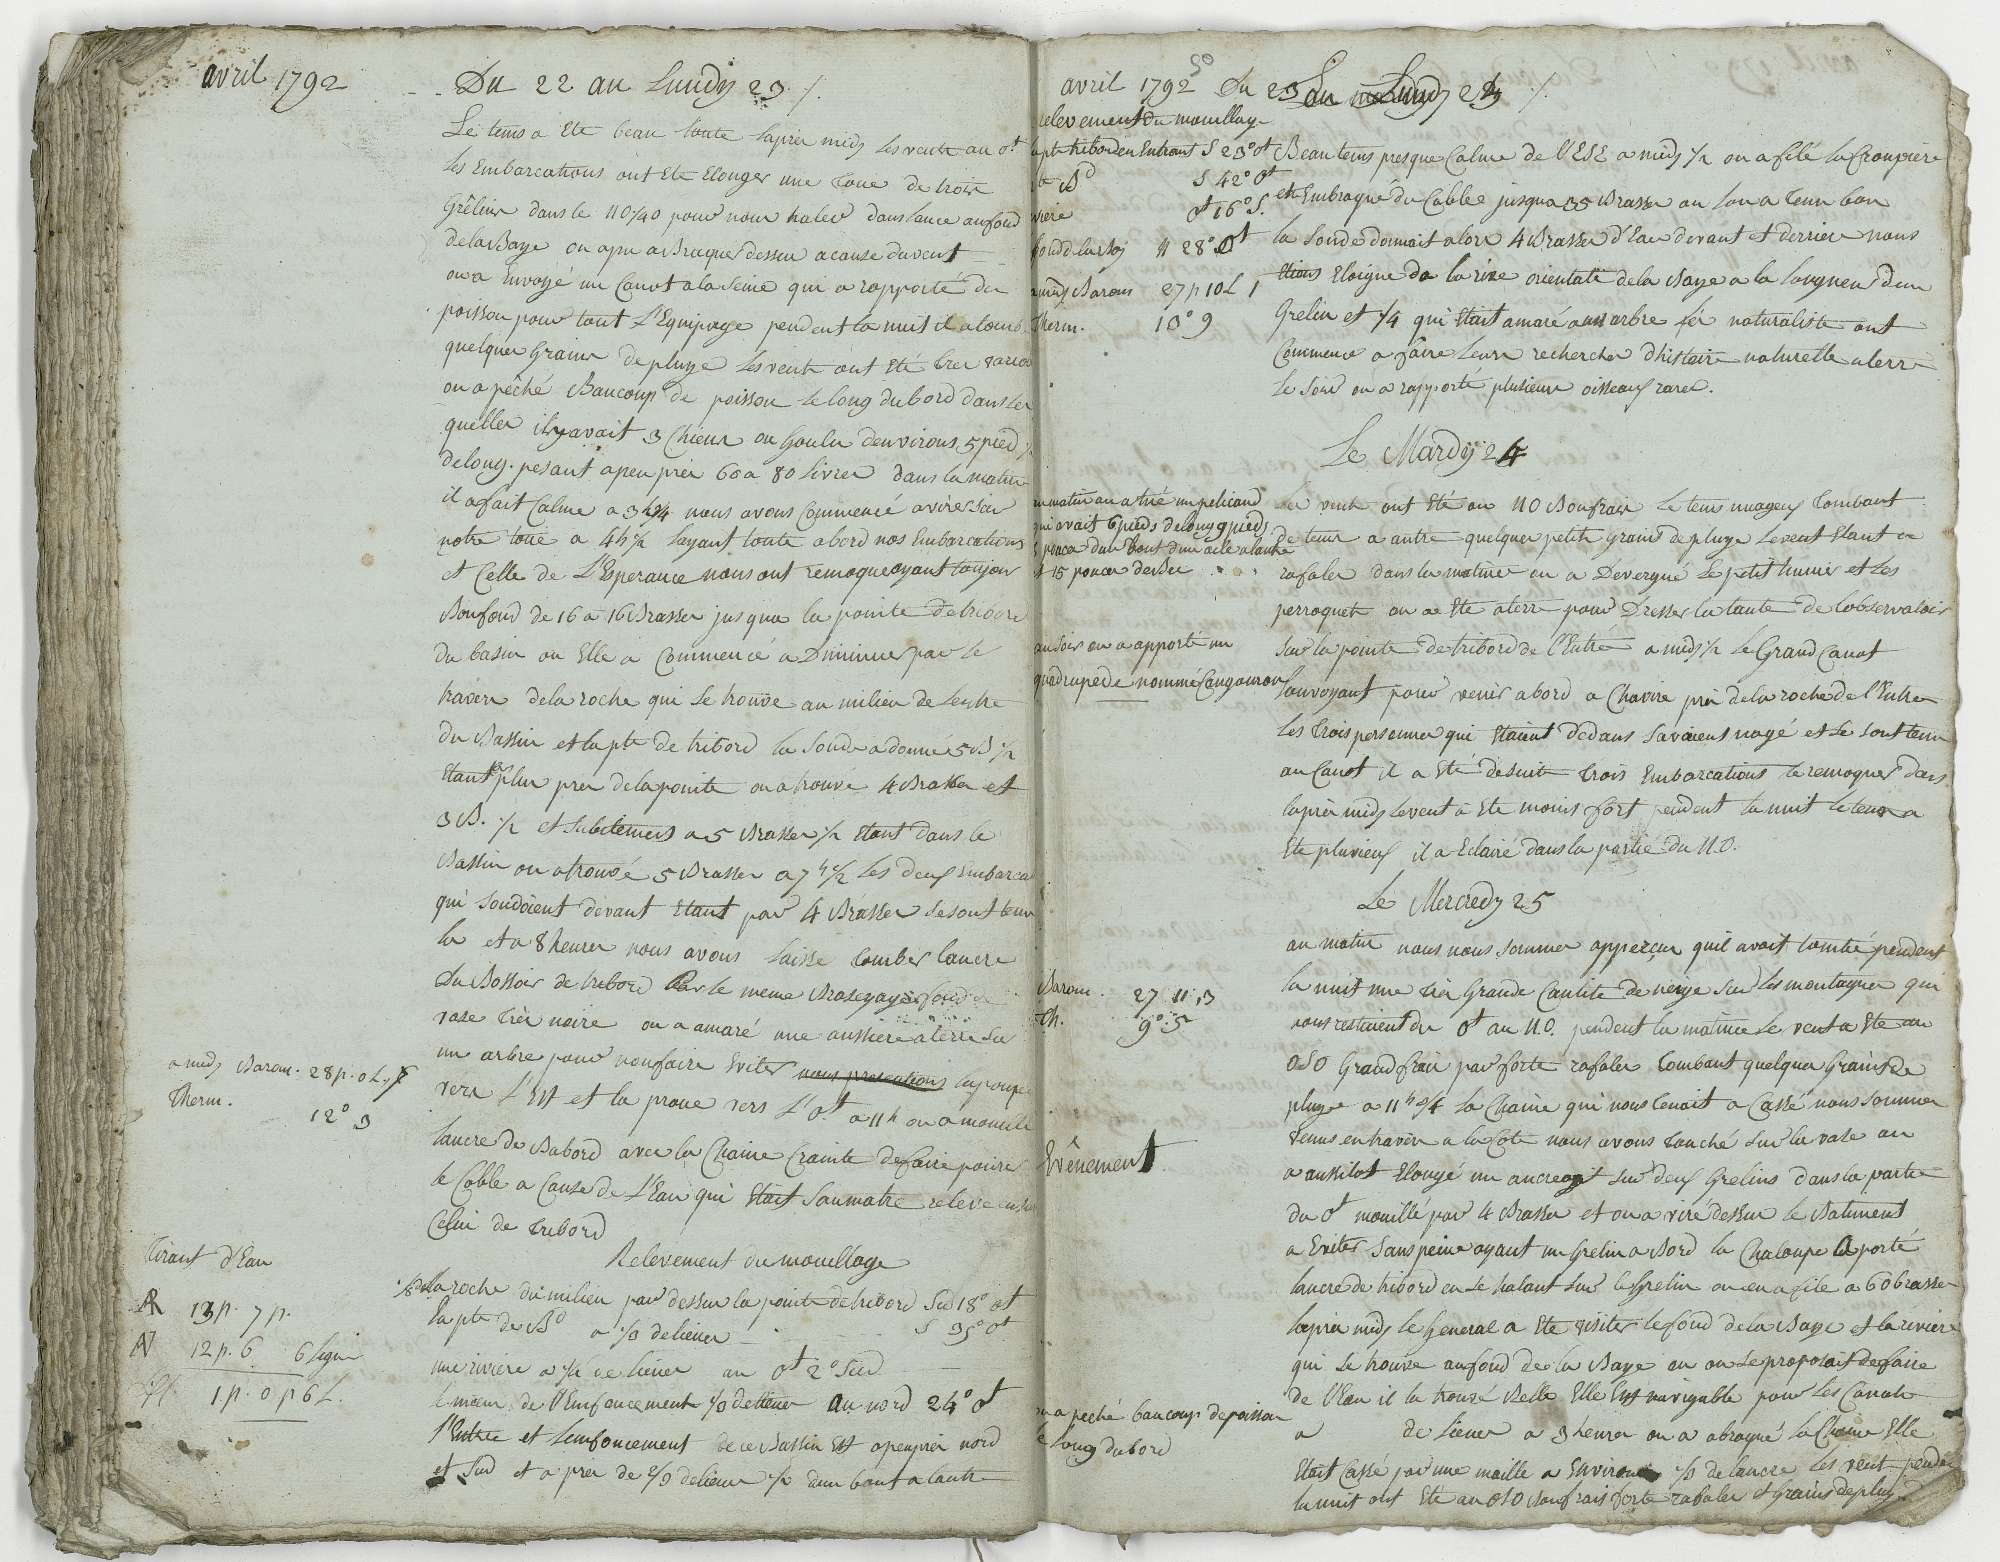 avril 1792
Du 22 au Lundy 23 /.
Le tems a Eté beau toute lapres midy les vents au Ot
Les Embarcations ont Eté Elonger une Toue de trois
Grêlins dans le NO¼O pour nous haler dans lance au fond
de la Baye on apu a Braquer dessu a cause du vent
on a Envoyé un Canot à la seine qui a rapporté du
poisson pour tout L'Equipage pendent la nuit il a tomb
quelques Grains de pluye Les vents ont Eté tres varia
on a pêché Baucoup de poisson le long du bord dans les
quelles il y avait 3 Chiens ou Goulu denvirons 5 pied
de long. pesant a peu près 60 a 80 Livres dans la matin
il a fait Calme a 3h ¾ nous avons Commencé a virer sur
notre toue a 4h ½ layant toute abord nos Embarcations
et Celle de L'Esperance nous ont remoque ayant toujour
Bonfond de 16 a 16 Brasses jusqua la pointe de tribord
du basin ou Elle a Commencé a Diminuer par le
travers de la roche qui se trouve au milieu de Lentre
du Bassin et la pte de tribord la sonde a donné 5 B ½
Etant plus pres de la pointe on a trouvé 4 Brasses et
3 B. ½ et subitement a 5 Brasses ½ Etant dans le
Bassin on a trouvé 5 Brasses a 7h ½ Les deux Embarca
qui sondoient devant Etant par 4 Brasses se sont tenu
la et a 8 heures nous avons laisse tomber lancre
du Bossoir de tribord Par le meme Brasseyage fond de
vase très noire on a amaré une aussiere a terre su
un arbre pour nous faire Eviter nous presentions la poupe
vers L'Est et la proue vers L'Ot a 11h on a mouillé
lancre de Babord avec la Chaine Crainte de faire pourir
le Cable a Cause de L'Eau qui Etait Saumatre relevé ensu
Celui de Tribord
a midy Barom. 28p. 0L, 7
Therm. 12° 3
Relevement du mouillage
la roche du milieu par dessus la pointe de tribord Sud 18° Ot
la pte de Bd a ⅓ de lieues S 35° Ot
une rivière a ½ de lieues au Ot 2° Sud
de l'Emfoncement ⅓ de lieues au nord 24° Ot
l'Entrée et lemfoncement de ce Bassin Est a peu près nord
et Sud et a près de ⅔ de lieues ½ dun bout a lautre
Tirant d'Eau
AR 13p. 7p.
AV 12p. 6 6 ligne
1p. 0p 6L.
avril 1792 Du 23 au Lundy 23 /.
50
relevement du mouillag
la pte tribord en Entrant S 23° Ot
Bd S 42° Ot
riviere Ot 16° S.
fond de la Bay N 28° Ot
a midy Barom 27p 10L 1
Therm. 10° 9
Beau tems presque Calme de l'ESE a midy ½ on a filé la Croupière
et Embraqué du Cable jusqua 35 Brasses ou lon a Tenu bon
la sonde donnait alors 4 Brasses d'Eau devant et derriere nous
Etions Eloigné de la rive orientale de la Baye a la longueur dun
Grelin et ¼ qui Etait amaré a un arbre les naturaliste ont
Commencé a faire leurs recherches d'histoire naturelle a terre
le Soir on a rapporté plusieurs oisseaux rares.
Le Mardy 24
au matin on a tué un pelicand
qui avait 6 pieds de long 9 pieds
pouces dun bout dune aile a lautre
et 15 pouces de Bec
au soir on a apporté un
quadrupede nommé Cangourou
Les vents ont Eté au NO Bonfrais le tems nuageux Tombant
de tems a autre quelques petits grains de pluye Levent Etant en
rafales dans la matinée on a Devergué le petit hunier et Les
perroquet on a Eté a terre pour Dresser la tante de lobservatoire
sur la pointe de tribord de l'Entrée a midy ½ Le Grand Canot
louvoyant pour venir abord a Chaviré près de la roche de l'Entre
Les Trois personnes qui Etaient Dedans savaient nagé et se sont tenu
au Canot il a Eté de suite Trois Embarcations le remoquer dans
lapres midy Levent a Eté moins fort pendent la nuit le tems a
Eté pluvieux il a Eclairé dans la partie du NO.
Le Mercredy 25
Barom. 27 11, 3
Th. 9° 5
au matin nous nous sommes apperçus quil avait tombé pendent
la nuit une très Grande Cantité de neige sur les montagnes qui
nous restaient du Ot au NO. pendent la matinée Le vent a Eté au
OSO Grandfrais par forte rafales Tombant quelques Grains de
pluye a 11h ¾ La Chaine qui nous Tenait a Cassé nous sommes
venus en travers a la Cote nous avons Touché sur la vase on
Evênement
a aussitot Elongé un ancre a jet sur deux Grelins dans la partie
du Ot mouillé par 4 Brasses et on a viré dessus le Batiment
a Eviter sans peine ayant un Grelin a Bord la Chaloupe a porté
lancre de tribord en se halant sur le Grelin on en a filé a 60 brasses
lapres midy le General a Eté visiter le fond de la Baye et la rivière
qui se trouve au fond de la Baye ou on se proposait de faire
de l'Eau il la trouvé Belle Elle Est navigable pour les Canots
a de Lieues a 3 heures on a abraqué la Chaine Elle
on a peché baucoup de poisson
le long du bord
Etait Cassé par une maille a Environs ⅓ de lancre les vents penden
la nuit ont Eté au OSO Bonfrais forte rafales et Grains de pluy